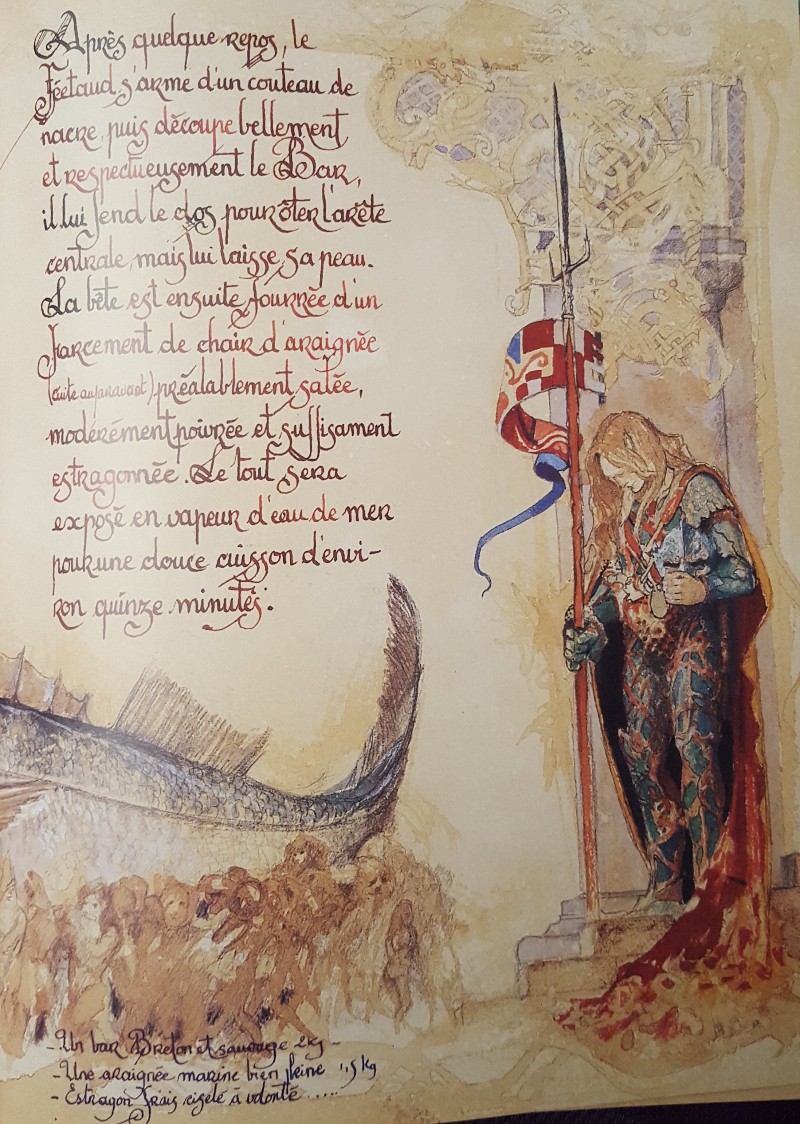 Après quelque repos, le
Féetaud s'arme d'un couteau de
nacre, puis découpe bellement
et respectueusement le Bar,
il lui fend le dos pour ôter l'arête
centrale, mais lui laisse sa peau.
La bête est ensuite fourrée d'un
farcement de chair d'araignée
(cuite auparavant) préalablement salée,
modérément poivrée et suffisament
estragonnée. Le tout sera
exposé en vapeur d'eau de mer
pour une douce cuisson d'envi-
ron quinze minutes.
- Un bar Breton et sauvage 2kg -
- Une araignée marine bien pleine 1,5 kg
- Estragon frais ciselé à volonté .....